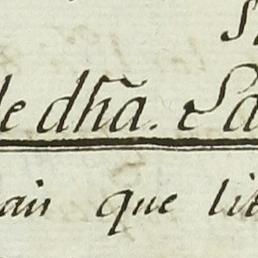 de dħa. Sa
ais que lit